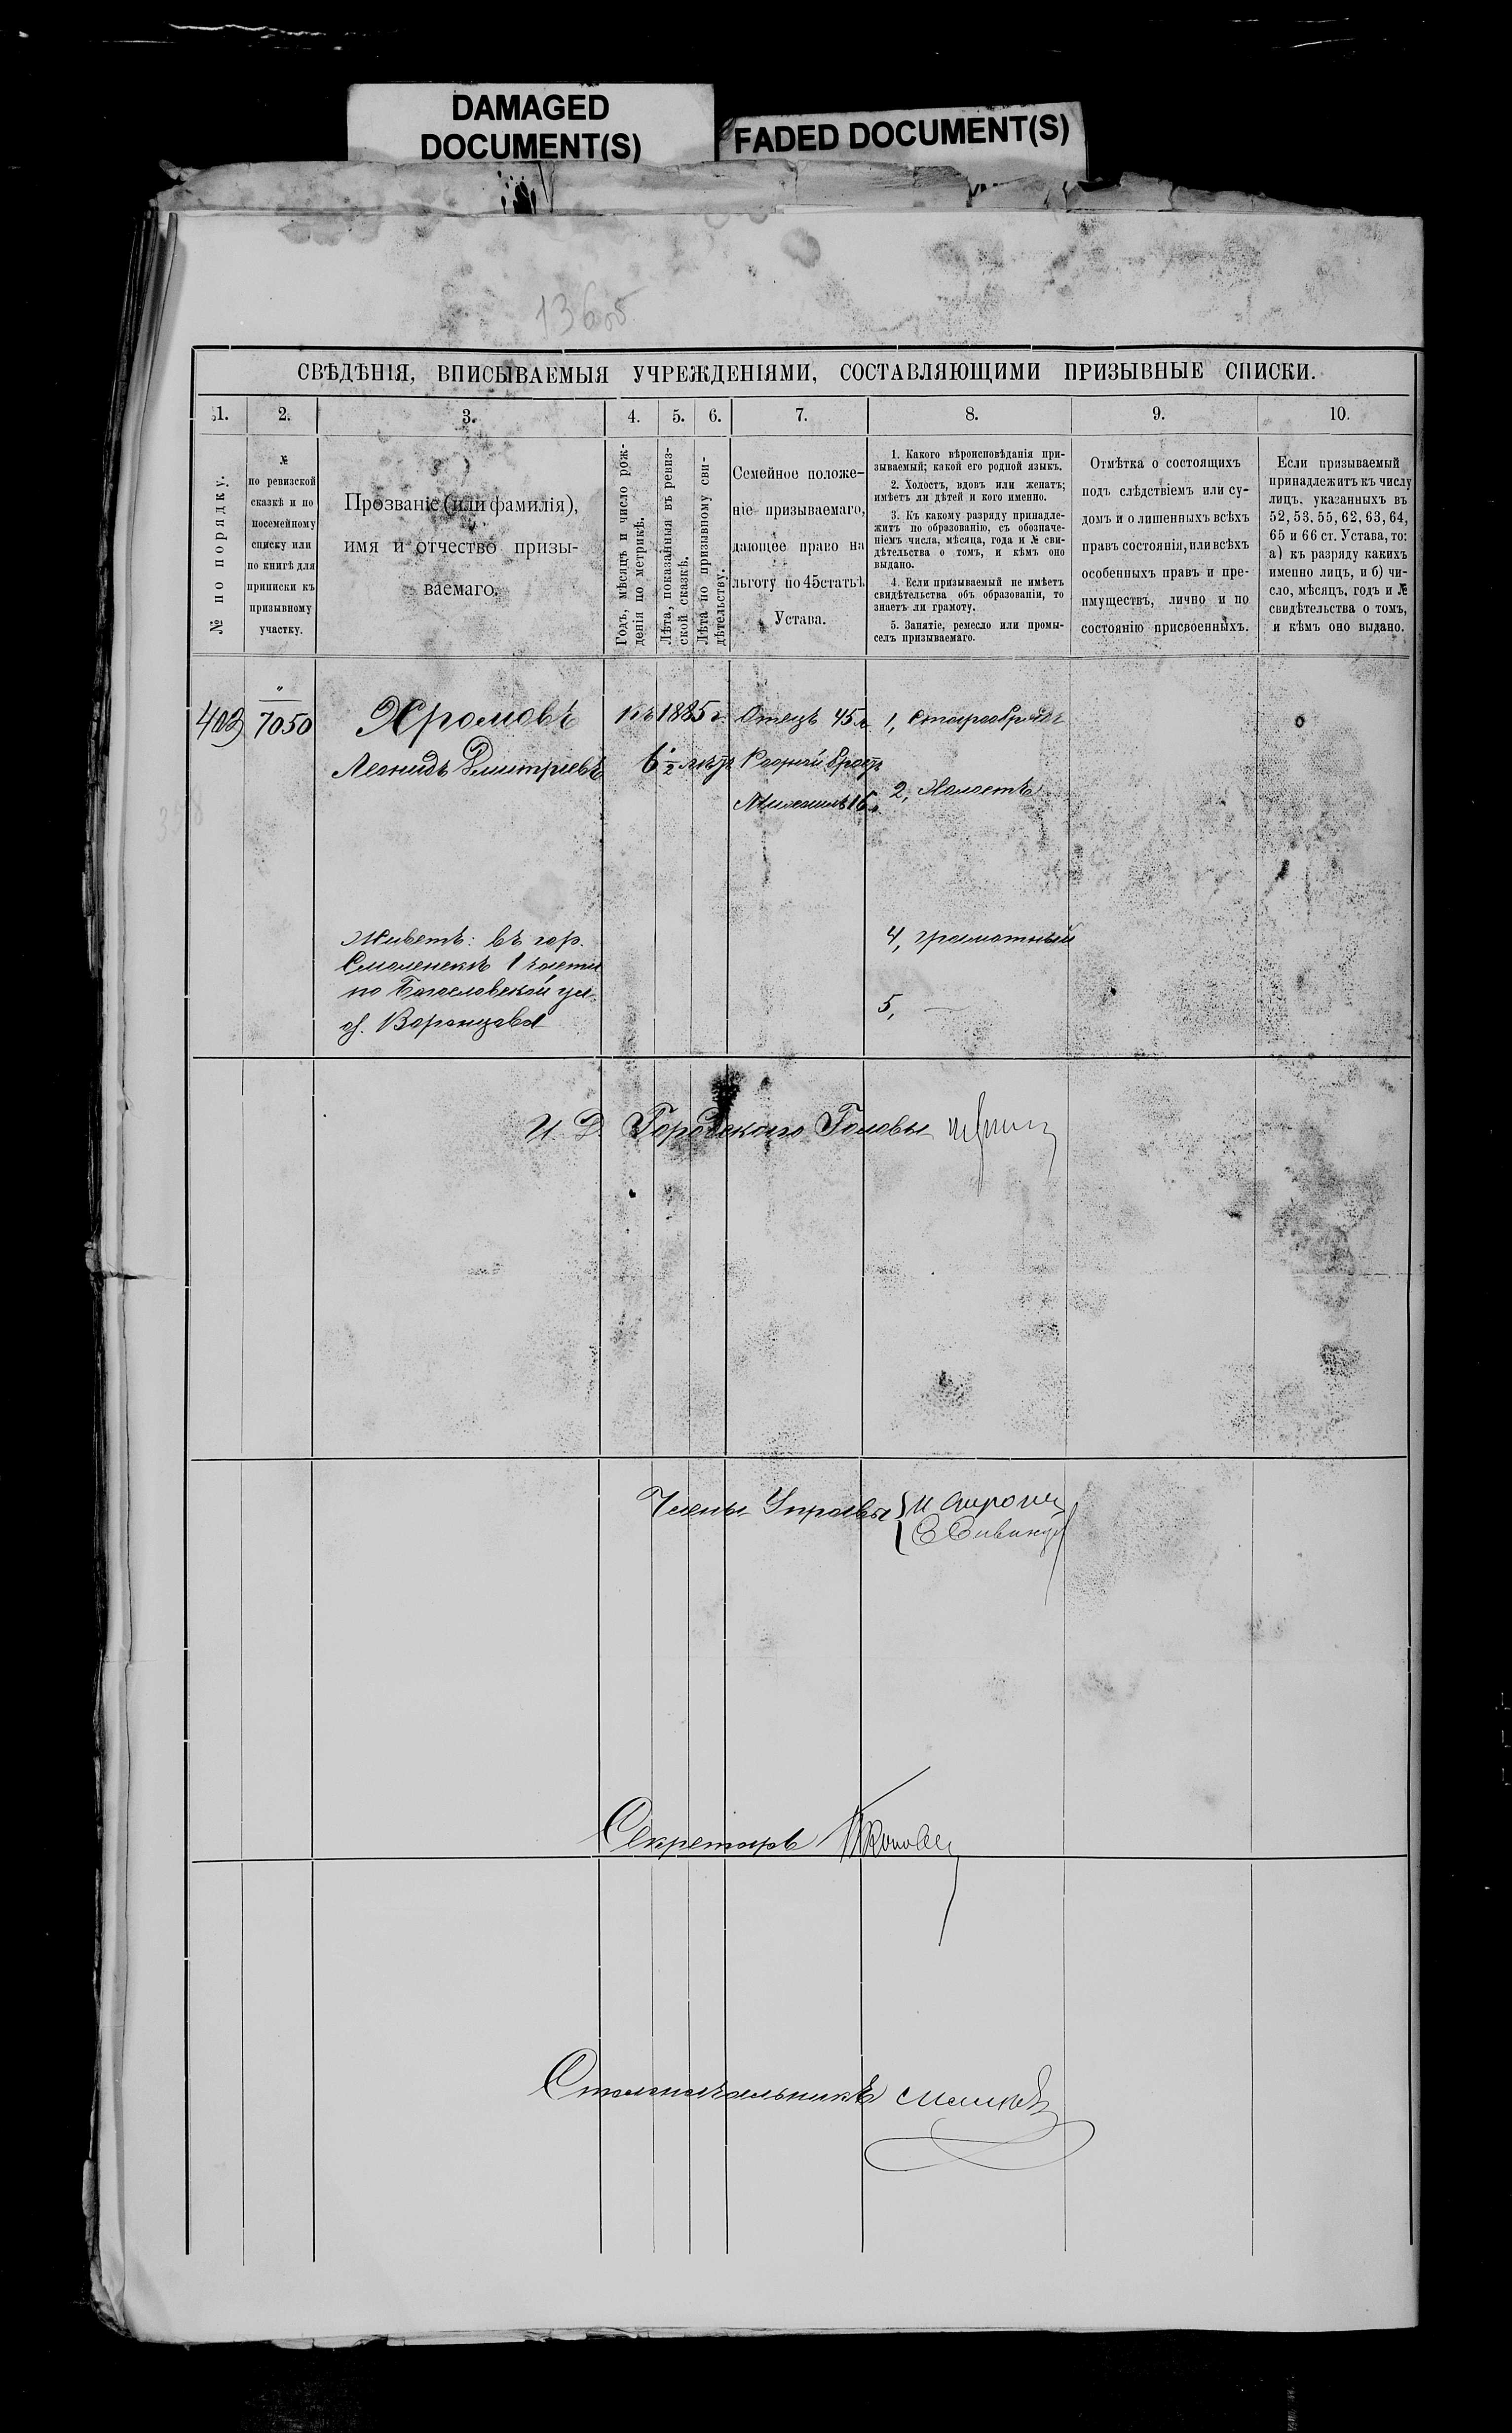 DAMAGED
DOCUMENT(S)
FADED DOCUMENT(S)
136об
СВѢДѢНІЯ, ВПИСЫВАЕМЫЯ УЧРЕЖДЕНІЯМИ, СОСТАВЛЯЮЩИМИ ПРИЗЫВНЫЕ СПИСКИ.
1. 2. 3. 4. 5. 6. 7. 8. 9. 10.
№ по порядку.
№
по ревизской
сказкѣ и по
посемейному
списку или
по книгѣ для
приписки къ
призывному
участку.
Прозваніе (или фамилія),
имя и отчество призы-
ваемаго.
Годъ, мѣсяцъ и число рож-
денія по метрикѣ.
Лѣта, показанныя въ ревиз-
ской сказкѣ.
Лѣта по призывному сви-
дѣтельству.
Семейное положе-
ніе призываемаго,
дающее право на
льготу по 45 статьѣ
Устава.
1. Какого вѣроисповѣданія при-
зываемый; какой его родной языкъ.
2. Холостъ, вдовъ или женатъ;
имѣетъ ли дѣтей и кого именно.
3. Къ какому разряду принадле-
житъ по образованію, съ обозначе-
ніемъ числа, мѣсяца, года и № сви-
дѣтельства о томъ, и кѣмъ оно
выдано.
4. Если призываемый не имѣетъ
свидѣтельства объ образованіи, то
знаетъ ли грамоту.
5. Занятіе, ремесло или промы-
селъ призываемаго.
Отмѣтка о состоящихъ
подъ слѣдствіемъ или су-
домъ и о лишенныхъ всѣхъ
правъ состоянія, или всѣхъ
особенныхъ правъ и пре-
имуществъ, лично и по
состоянію присвоенныхъ.
Если призываемый
принадлежитъ къ числу
лицъ, указанныхъ въ
52, 53, 55, 62, 63, 64,
65 и 66 ст. Устава, то:
а) къ разряду какихъ
именно лицъ, и б) чи-
сло, мѣсяцъ, годъ и №
свидѣтельства о томъ,
и кѣмъ оно выдано.
403
"
7050
Хромовъ
Леонидъ Дмитріевъ
Живетъ: въ гор.
Смоленскѣ 1 части
по Богословской ул.
д. Воронцова
къ 1885 г.
6 ½ лѣтъ
Отецъ 45 л.
Родной братъ
16
1, старообрядъ
2, Холостъ
4, грамотный
5, —
И. Д. Городского Головы
Члены Управы
Секретарь
Столоначальникъ